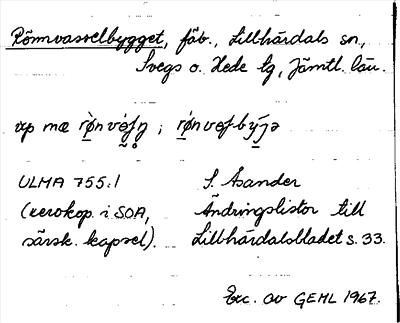 Römvasselbygget, fäb., Lillhärdals sn,
Svegs o. Hede tg, Jämtl. län.
up mæ
ULMA 755:1 S. Asander
(xerokop. i SOA, Ändringslistor till
särsk. kapsel). Lillhärdalsbladet s. 33.
Exc. av GEHL 1967.